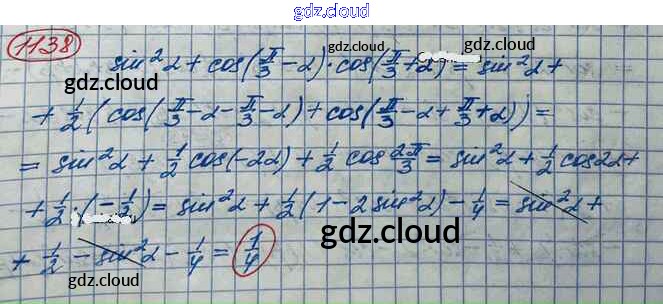 gdz.cloud
1138
sin²α + cos(π/3 − α)·cos(π/3 + α) = sin²α +
gdz.cloud
gdz.cloud
+ 1/2 (cos(π/3 − α − π/3 − α) + cos(π/3 − α + π/3 + α)) =
= sin²α + 1/2 cos(−2α) + 1/2 cos 2π/3 = sin²α + 1/2 cos2α +
+ 1/2·(−1/2) = sin²α + 1/2 (1 − 2sin²α) − 1/4 = sin²α +
gdz.cloud
gdz.cloud
+ 1/2 − sin²α − 1/4 = 1/4